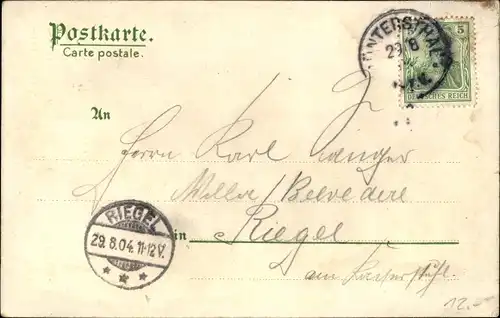 Postkarte.
Carte postale.
GÜNTERSTHAL
29 8
5
DEUTSCHES REICH
An
Herrn Karl Langer
Belvedere
RIEGEL
29.8.04. 11-12 V.
in Riegel
am Kaiserstuhl.
12.-